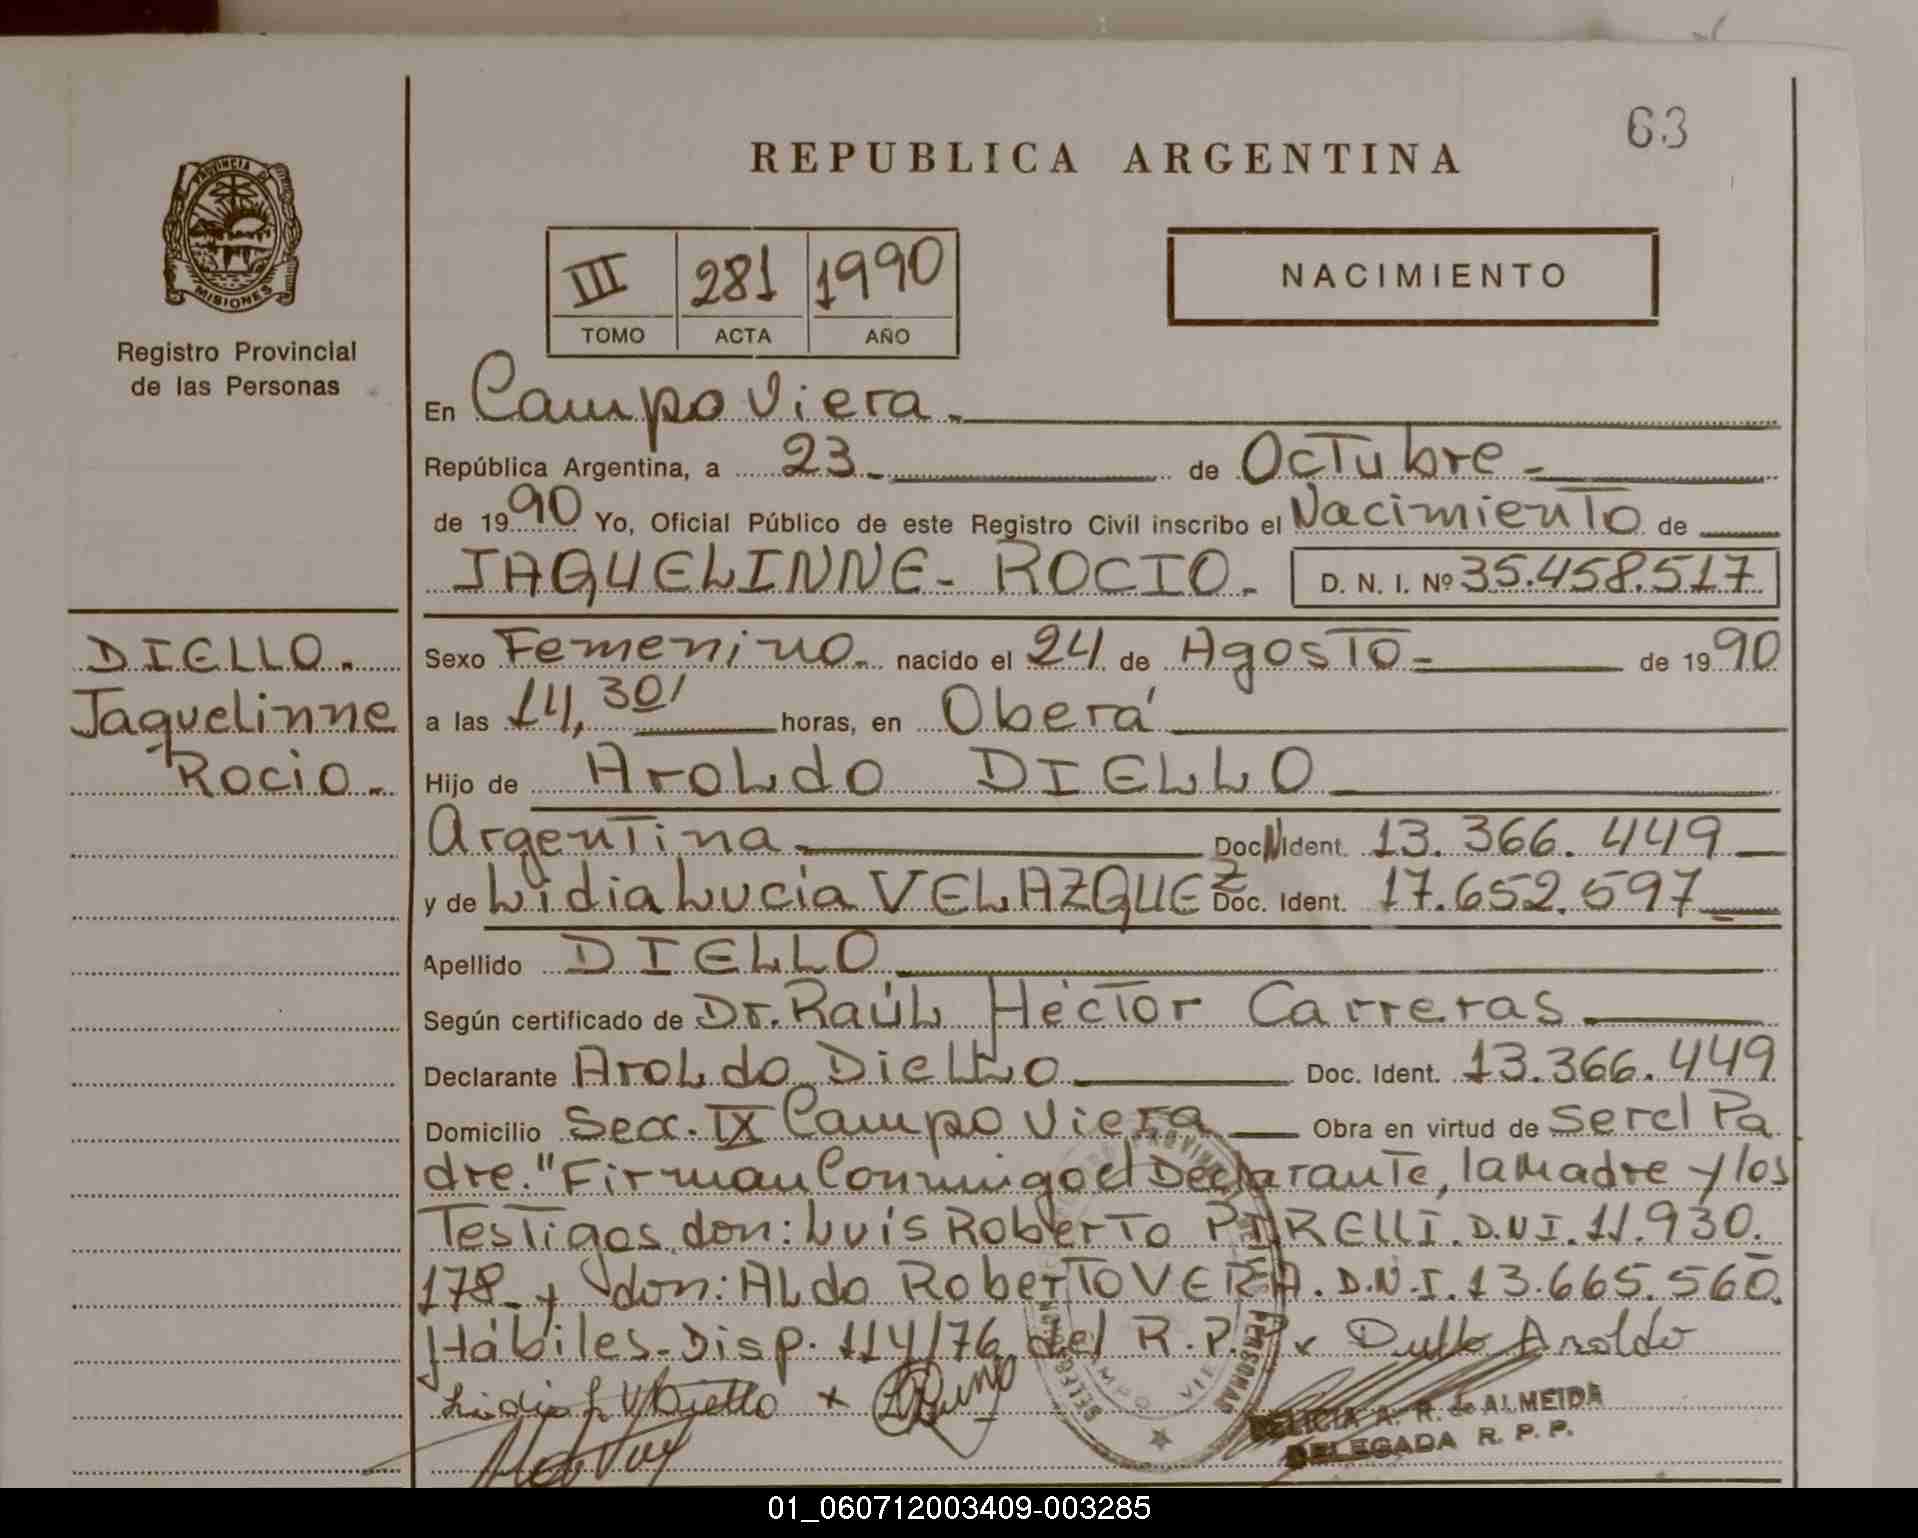 63
REPUBLICA ARGENTINA
PROVINCIA DE
MISIONES
Registro Provincial
de las Personas
III 281 1990
TOMO ACTA AÑO
NACIMIENTO
En Campo Viera.
República Argentina, a 23 de Octubre
de 1990 Yo, Oficial Público de este Registro Civil inscribo el Nacimiento de
JAQUELINNE - ROCIO. D. N. I. Nº 35.458.517
DIELLO.
Jaquelinne
Rocio.
Sexo Femenino. nacido el 24 de Agosto de 1990
a las 14,30' horas, en Oberá
Hijo de Aroldo DIELLO
Argentina Doc. Ident. 13.366.449
y de Lidia Lucia VELAZQUEZ Doc. Ident. 17.652.597
Apellido DIELLO
Según certificado de Dr. Raúl Héctor Carreras
Declarante Aroldo Diello Doc. Ident. 13.366.449
Domicilio Secc. IX Campo Viera Obra en virtud de ser el Pa
dre." Firman Conmigo el Declarante, la Madre y los
Testigos don: Luis Roberto PIRELLI. D.N.I. 11.930.
178 y don: Aldo Roberto VERA. D.N.I. 13.665.560.
Hábiles. Disp. 114/76 del R.P.P. x Diello Aroldo
Lidia L V Diello x
DELICIA A. R. de ALMEIDA
DELEGADA R. P. P.
01_060712003409-003285